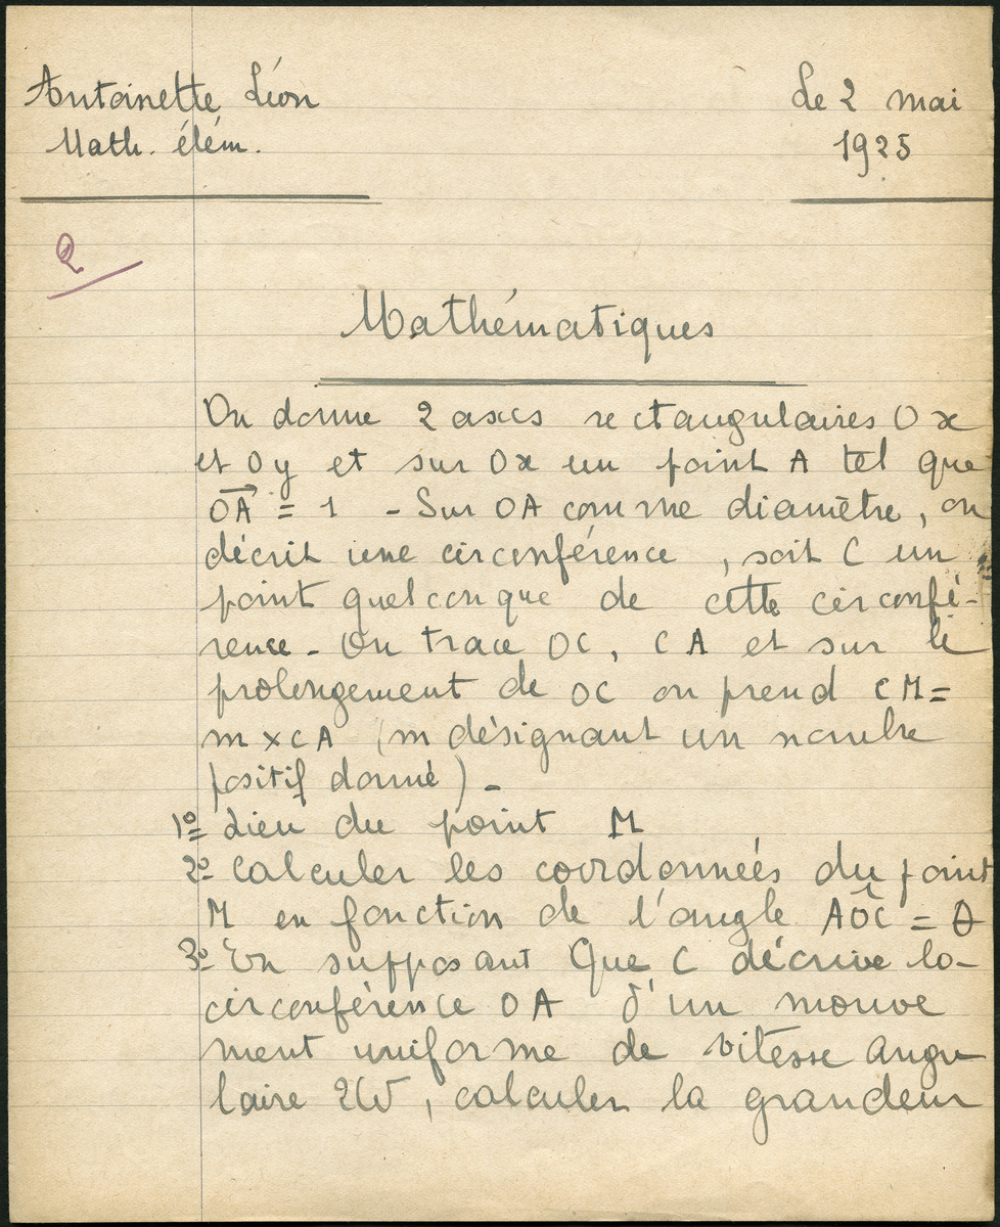 Antoinette Léon
Le 2 mai
Math. élém.
1925
2
Mathématiques
On donne 2 axes rectangulaires Ox
et Oy et sur Ox un point A tel que
OA = 1 - Sur OA comme diamètre, on
décrit une circonférence, soit C un
point quelconque de cette circonfé-
rence - On trace OC, CA et sur le
prolongement de OC on prend CM =
m x CA (m désignant un nombre
positif donné) -
1º Lieu du point M
2º Calculer les coordonnées du point
M en fonction de l'angle AÔC = θ
3º En supposant Que C décrive la
circonférence OA d'un mouve
ment uniforme de vitesse angu-
laire 2ω, calculer la grandeur